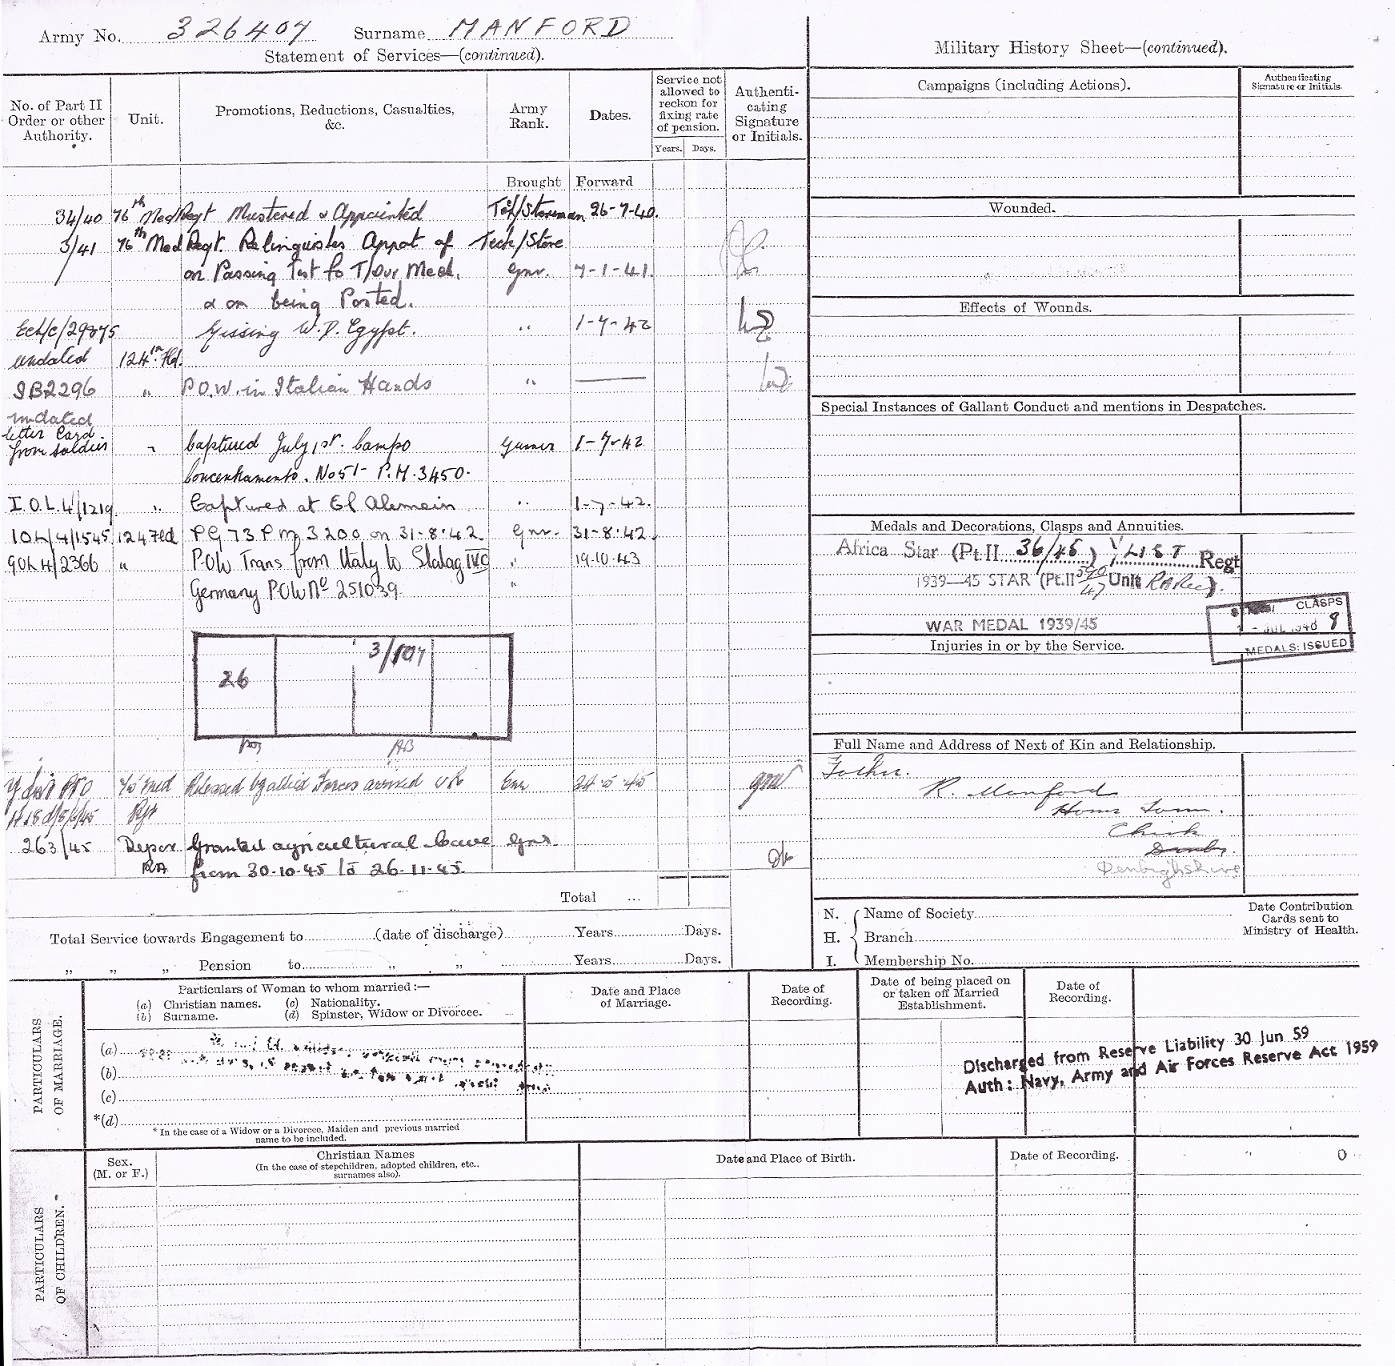 Army No. 326407 Surname MANFORD
Statement of Services—(continued).
No. of Part II Order or other Authority.
Unit.
Promotions, Reductions, Casualties, &c.
Army Rank.
Dates.
Service not allowed to reckon for fixing rate of pension.
Years. Days.
Authenti-cating Signature or Initials.
Brought Forward
34/40 76th Med Regt Mustered & Appointed Tech/Storeman 26-7-40.
3/41 76th Med Regt. Relinquishes Appnt of Tech/Store
on Passing Test fo T/Our Med. Gnr. 7-1-41.
& on being Posted.
Ech/c/29875 Missing W.D. Egypt. " 1-7-42
undated 124th Fld.
IB2296 " P.O.W. in Italian Hands "
undated
letter Card
from soldier " Captured July 1st. Campo Gunner 1-7-42
Concentramento. No 51- P.M. 3450.
I.O.L.4/1219. " Captured at El Alemein " 1-7-42.
IOL/4/1545 124 Fld PG 73 P m 3200 on 31-8-42 Gnr. 31-8-42.
90L4/2366 " POW Trans from Italy to Stalag IVC " 19-10-43
Germany POW No 251039. "
26 3/107
Released by allied Forces arrived UK 24-5-45
263/45 Depot RA Granted agricultural leave Gnr.
from 30-10-45 to 26-11-45.
Total ...
Total Service towards Engagement to (date of discharge) Years Days.
" " " Pension to " " Years Days.
Military History Sheet—(continued).
Campaigns (including Actions).
Authenticating Signature or Initials.
Wounded.
Effects of Wounds.
Special Instances of Gallant Conduct and mentions in Despatches.
Medals and Decorations, Clasps and Annuities.
Africa Star (Pt.II 36/45) Y LIST Regt
1939—45 STAR (Pt.II 47 Unit RA Rec).
WAR MEDAL 1939/45
CLASPS
MEDALS: ISSUED
Injuries in or by the Service.
Full Name and Address of Next of Kin and Relationship.
Father.
R. Manford
Chirk
Denbighshire
N. H. I.
Name of Society
Branch
Membership No.
Date Contribution Cards sent to Ministry of Health.
PARTICULARS OF MARRIAGE.
Particulars of Woman to whom married:—
(a) Christian names. (c) Nationality.
(b) Surname. (d) Spinster, Widow or Divorcee.
(a)
(b)
(c)
*(d)
* In the case of a Widow or a Divorcee, Maiden and previous married name to be included.
Date and Place of Marriage.
Date of Recording.
Date of being placed on or taken off Married Establishment.
Date of Recording.
Discharged from Reserve Liability 30 Jun 59
Auth: Navy, Army and Air Forces Reserve Act 1959
PARTICULARS OF CHILDREN.
Sex. (M. or F.)
Christian Names
(In the case of stepchildren, adopted children, etc., surnames also).
Date and Place of Birth.
Date of Recording.